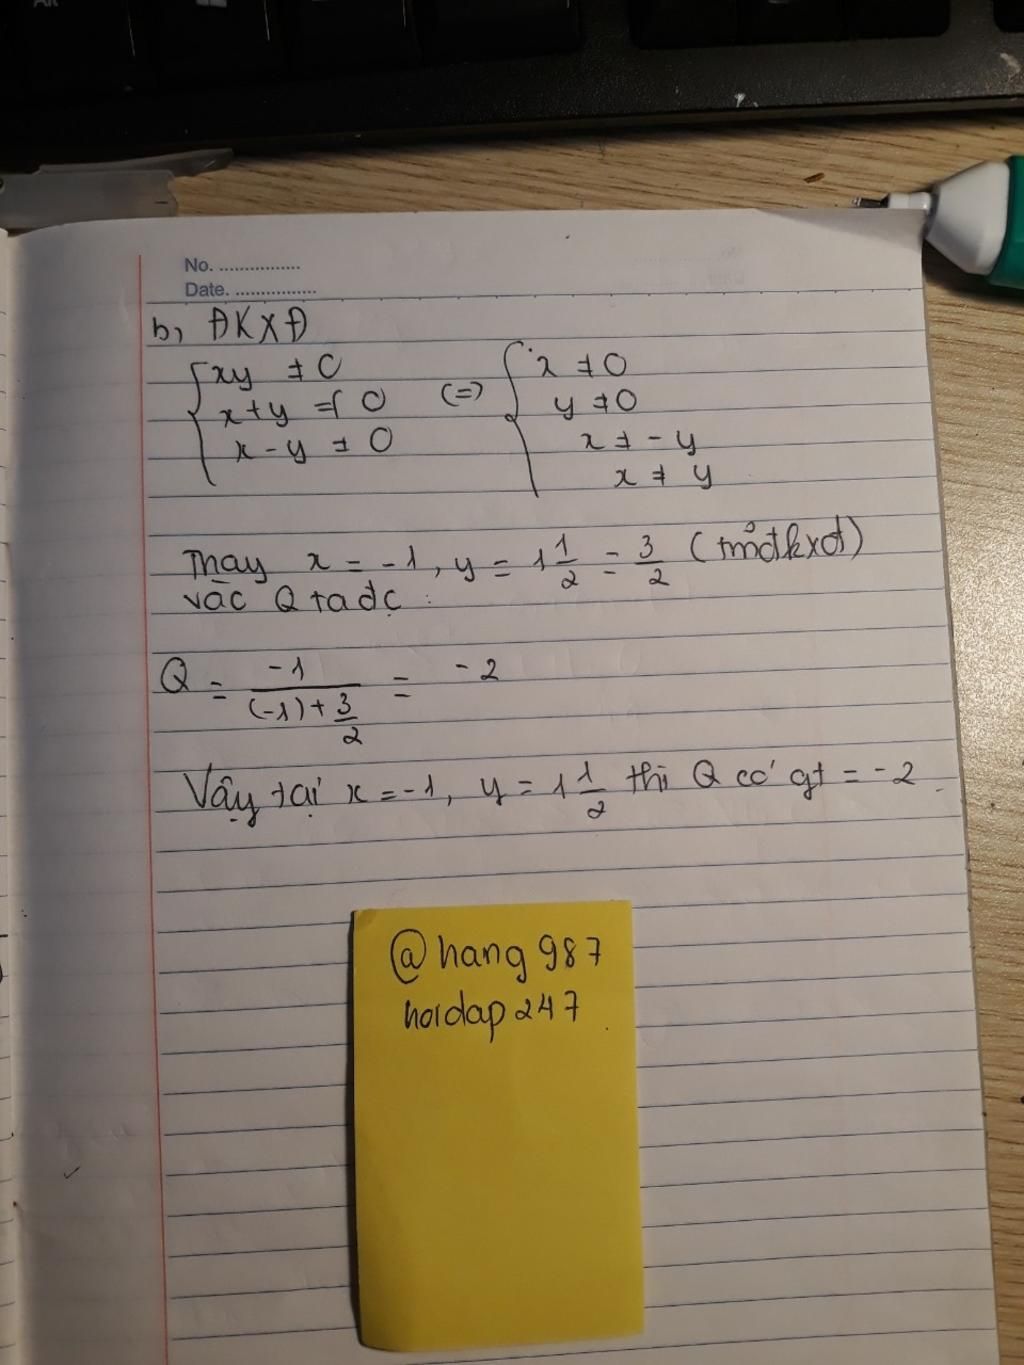 No. ................
Date. ................
b, ĐKXĐ
{ xy ≠ 0
x + y ≠ 0
x - y ≠ 0
(=) { x ≠ 0
y ≠ 0
x ≠ - y
x ≠ y
Thay x = -1, y = 1 1/2 = 3/2 (tmđkxđ)
vào Q ta đc :
Q = -1 / ((-1) + 3/2) = -2
Vậy tại x = -1, y = 1 1/2 thì Q có gt = -2.
@hang987
hoidap247